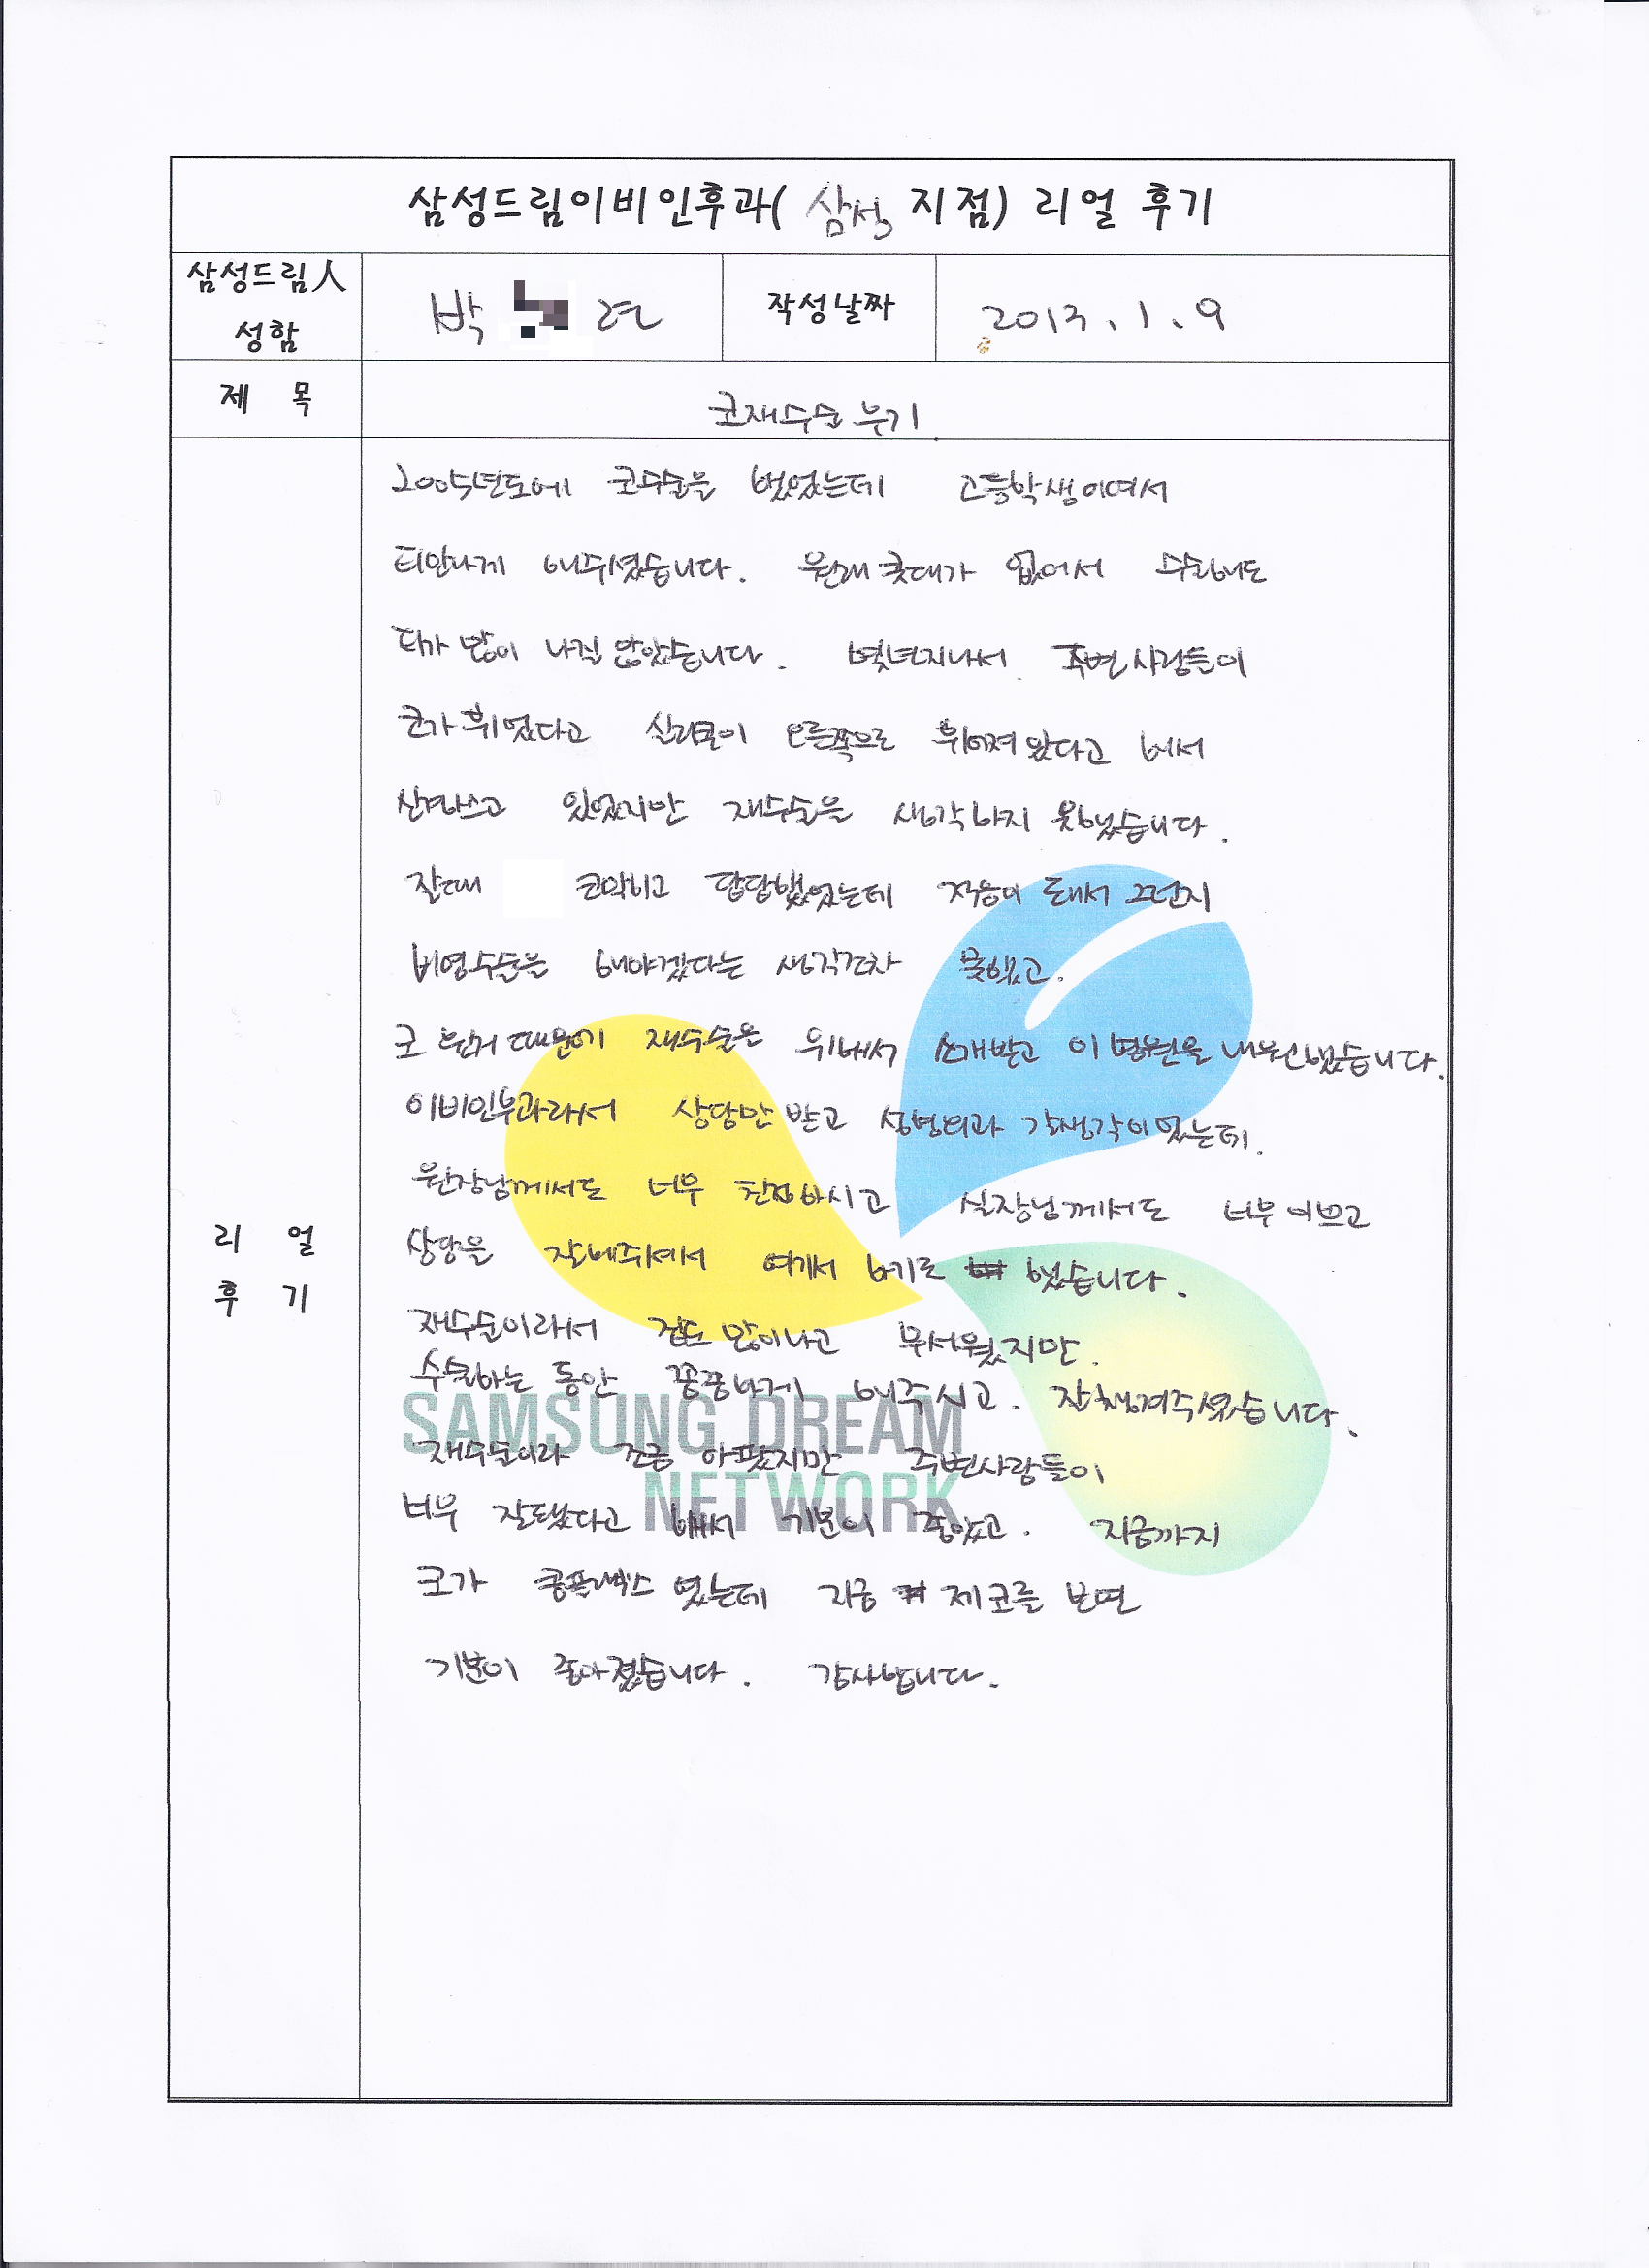 삼성드림이비인후과( 삼성 지점) 리얼 후기
삼성드림人 성함
박 연
작성날짜
2013. 1. 9
제 목
코재수술 후기
리 얼 후 기
2005년도에 코수술을 했었는데 고등학생이여서
티안나게 해주셨습니다. 원래 콧대가 없어서 수술해도
티가 많이 나질 않았습니다. 몇년지나서 주변사람들이
코가 휘었다고 실리콘이 오른쪽으로 휘어져 있다고 해서
신경쓰고 있었지만 재수술을 생각하지 못했습니다.
잘때 코막히고 답답했었는데 적응이 돼서 그런지
비염수술을 해야겠다는 생각조차 못했고.
코 휜거 때문에 재수술은 위해서 소개받고 이 병원을 내원했습니다.
이비인후과라서 상담만 받고 성형외과 갈생각이었는데.
원장님께서도 너무 친절하시고 실장님께서도 너무 이쁘고
상담을 잘해주셔서 여기서 하기로 했습니다.
재수술이라서 겁도 많이나고 무서웠지만.
수술하는 동안 꼼꼼하게 해주시고. 잘 챙겨주셨습니다.
재수술이라 조금 아팠지만 주변사람들이
너무 잘됐다고 해서 기분이 좋았고. 지금까지
코가 콤플렉스 였는데 지금 제 코를 보면
기분이 좋아졌습니다. 감사합니다.
SAMSUNG DREAM
NETWORK